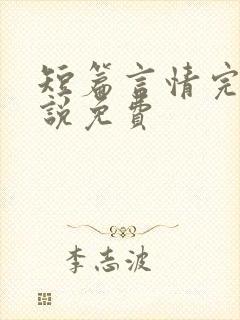 短篇言情完
說免費
李志波